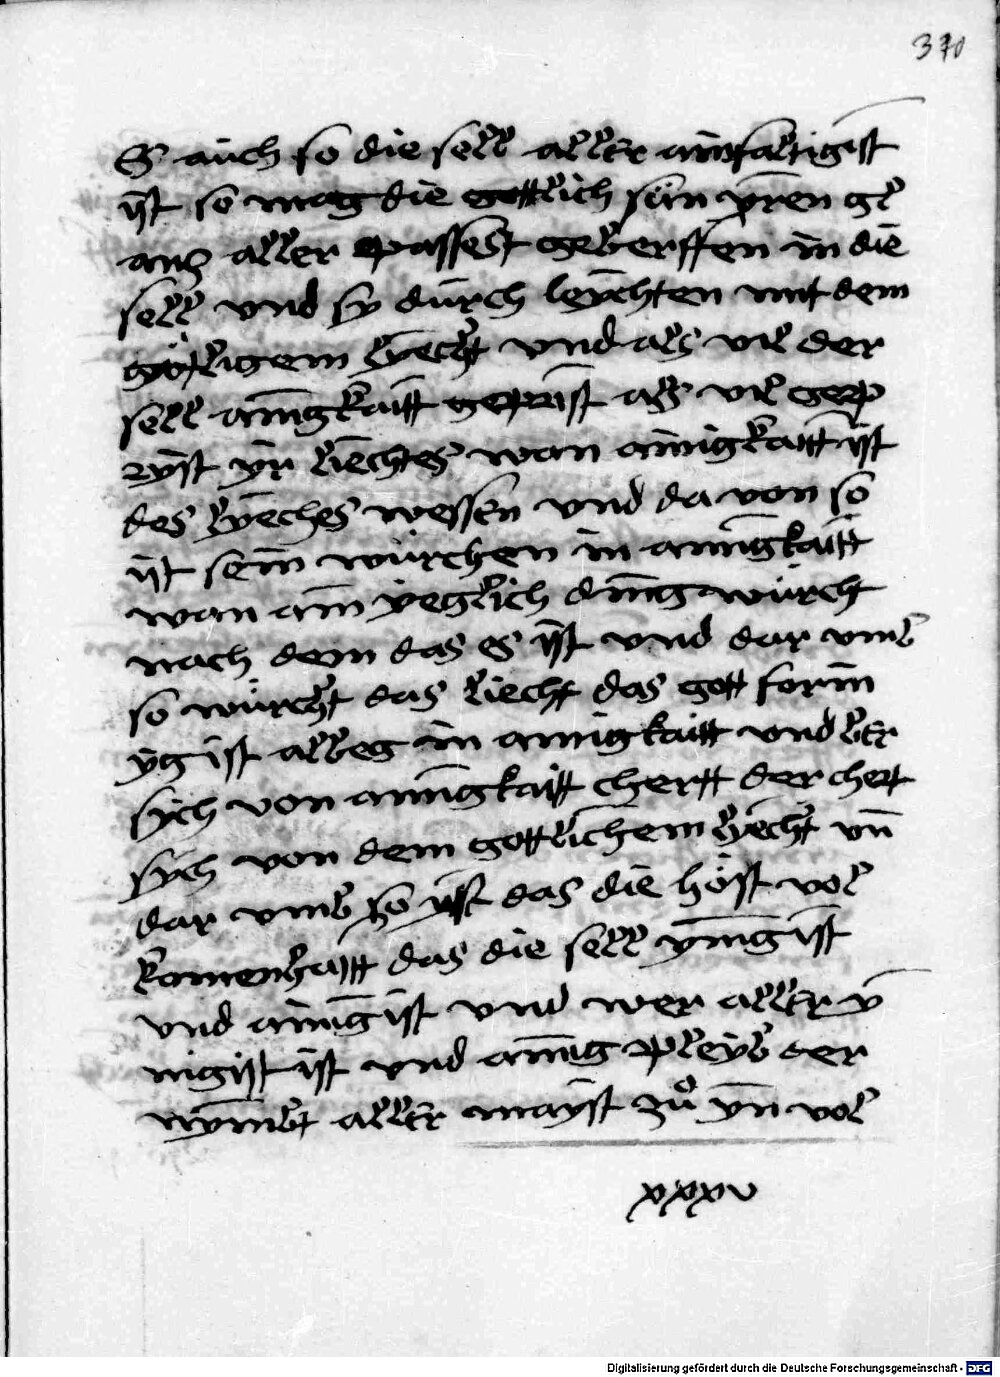 370
S auch so die sell aller ainfaltigist
ist so mag die gottlich sun yren gl
ancz aller passest geberffen in die
sell vnd sy durch leychten mit dem
götligem lyecht vnd als vil der
sell ainigkaitt geprist als vil gep
ryst yr liechtes wan ainigkaitt ist
des lyeches wessen vnd da von so
ist sein würchen in ainigkaitt
wan ain yeglich ding würcht
nach dem das es ist vnd dar vmb
so würcht das liecht das gott form
yg ist albeg in ainigkaitt vnd ber
sych von ainigkaitt chertt der chert
sych von dem gottlichem lyecht vn̄
dar vmb so yst das die höst vol
komenhaitt das die sell ynnig ist
vnd ainig ist vnd wer aller yn̄
nigist ist vnd ainig pleyb der
nymbt aller mayst zů yn vol
xxxv
Digitalisierung gefördert durch die Deutsche Forschungsgemeinschaft - DFG